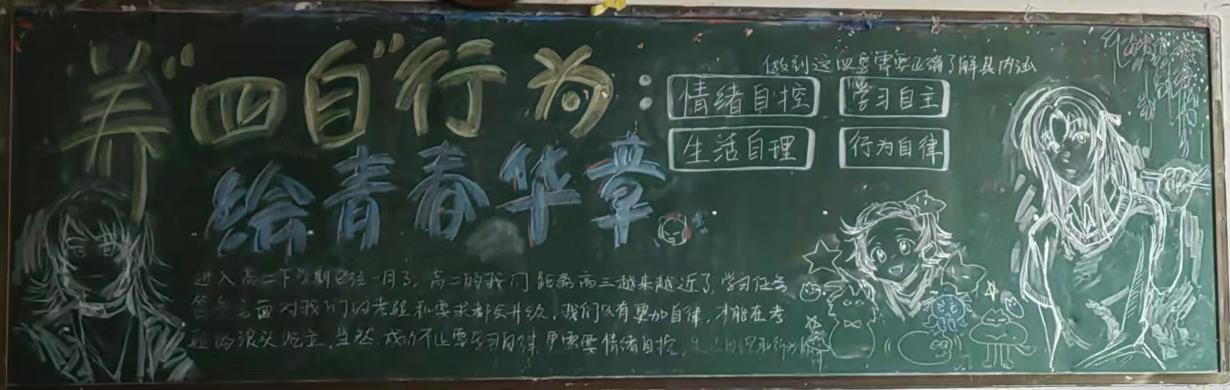 养“四自”行为：
绘青春华章
做到这四要需要正确了解其内涵
情绪自控 学习自主
生活自理 行为自律
进入高二下学期已经一月了，高二的我们距离高三越来越近了，学习任务
面对我们的考验和要求都会升级，我们只有更加自律，才能在考
验的浪头屹立，当然，成功不止要学习自律，更需要情绪自控，